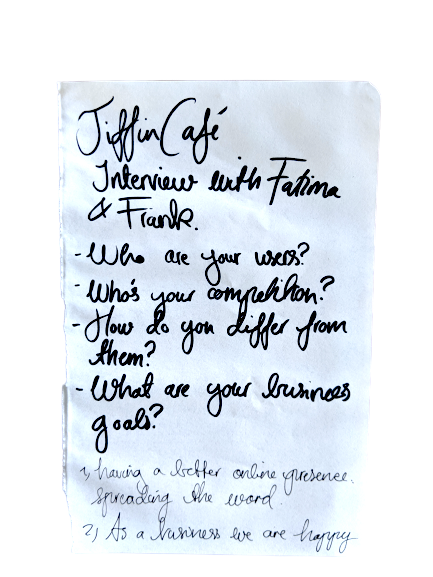 Tiffin Café
Interview with Fatima
& Frank.
- Who are your users?
- Who's your competition?
- How do you differ from
them?
- What are your business
goals?
1, having a better online presence.
spreading the word.
2, As a business we are happy